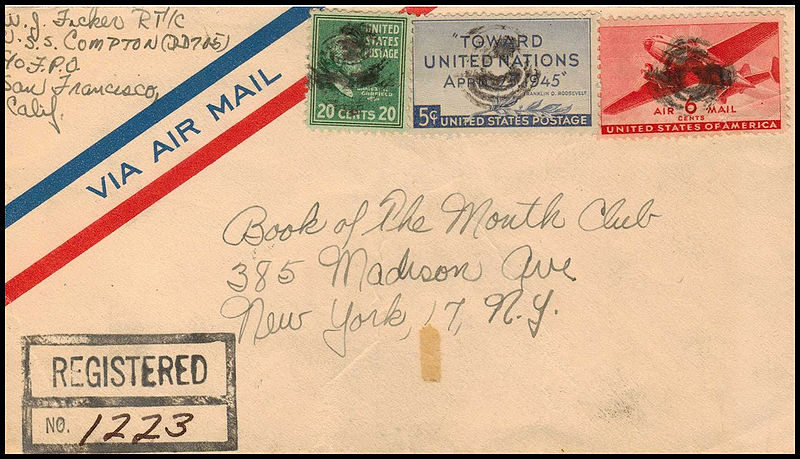 W. J. Ficker RT1/c
U.S.S. COMPTON (DD705)
c/o F.P.O
San Francisco,
Calif.
VIA AIR MAIL
UNITED
STATES
POSTAGE
20 CENTS 20
"TOWARD
UNITED NATIONS
APRIL 25, 1945"
FRANKLIN D. ROOSEVELT
5¢ UNITED STATES POSTAGE
AIR 6 MAIL
CENTS
UNITED STATES OF AMERICA
Book of The Month Club
385 Madison Ave
New York, 17, N.Y.
REGISTERED
NO. 1223